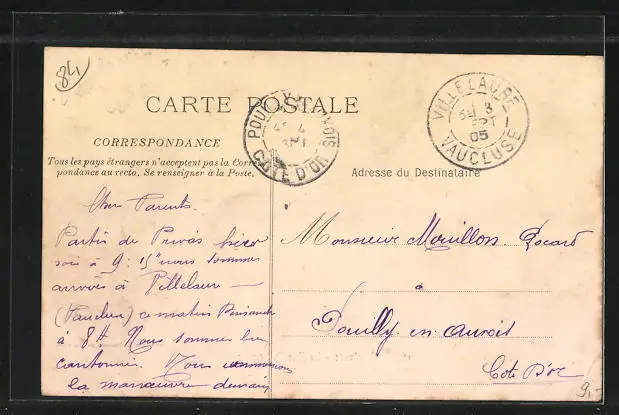 84
CARTE POSTALE
VILLELAURE
3
05
VAUCLUSE
POUILLY
4
COTE D'OR
CORRESPONDANCE
Tous les pays étrangers n'acceptent pas la Corres-
pondance au recto. Se renseigner à la Poste.
Adresse du Destinataire
Cher Parents
Partis de Privas hier
soir à 9: 15 nous sommes
arrivés à Villelaure
(Vaucluse) ce matin
à 8H Nous sommes bien
cantonnés. Nous commençons
la manœuvre demain
Monsieur Mouillon
Pouilly en Auxois
Cote D'or
9.-